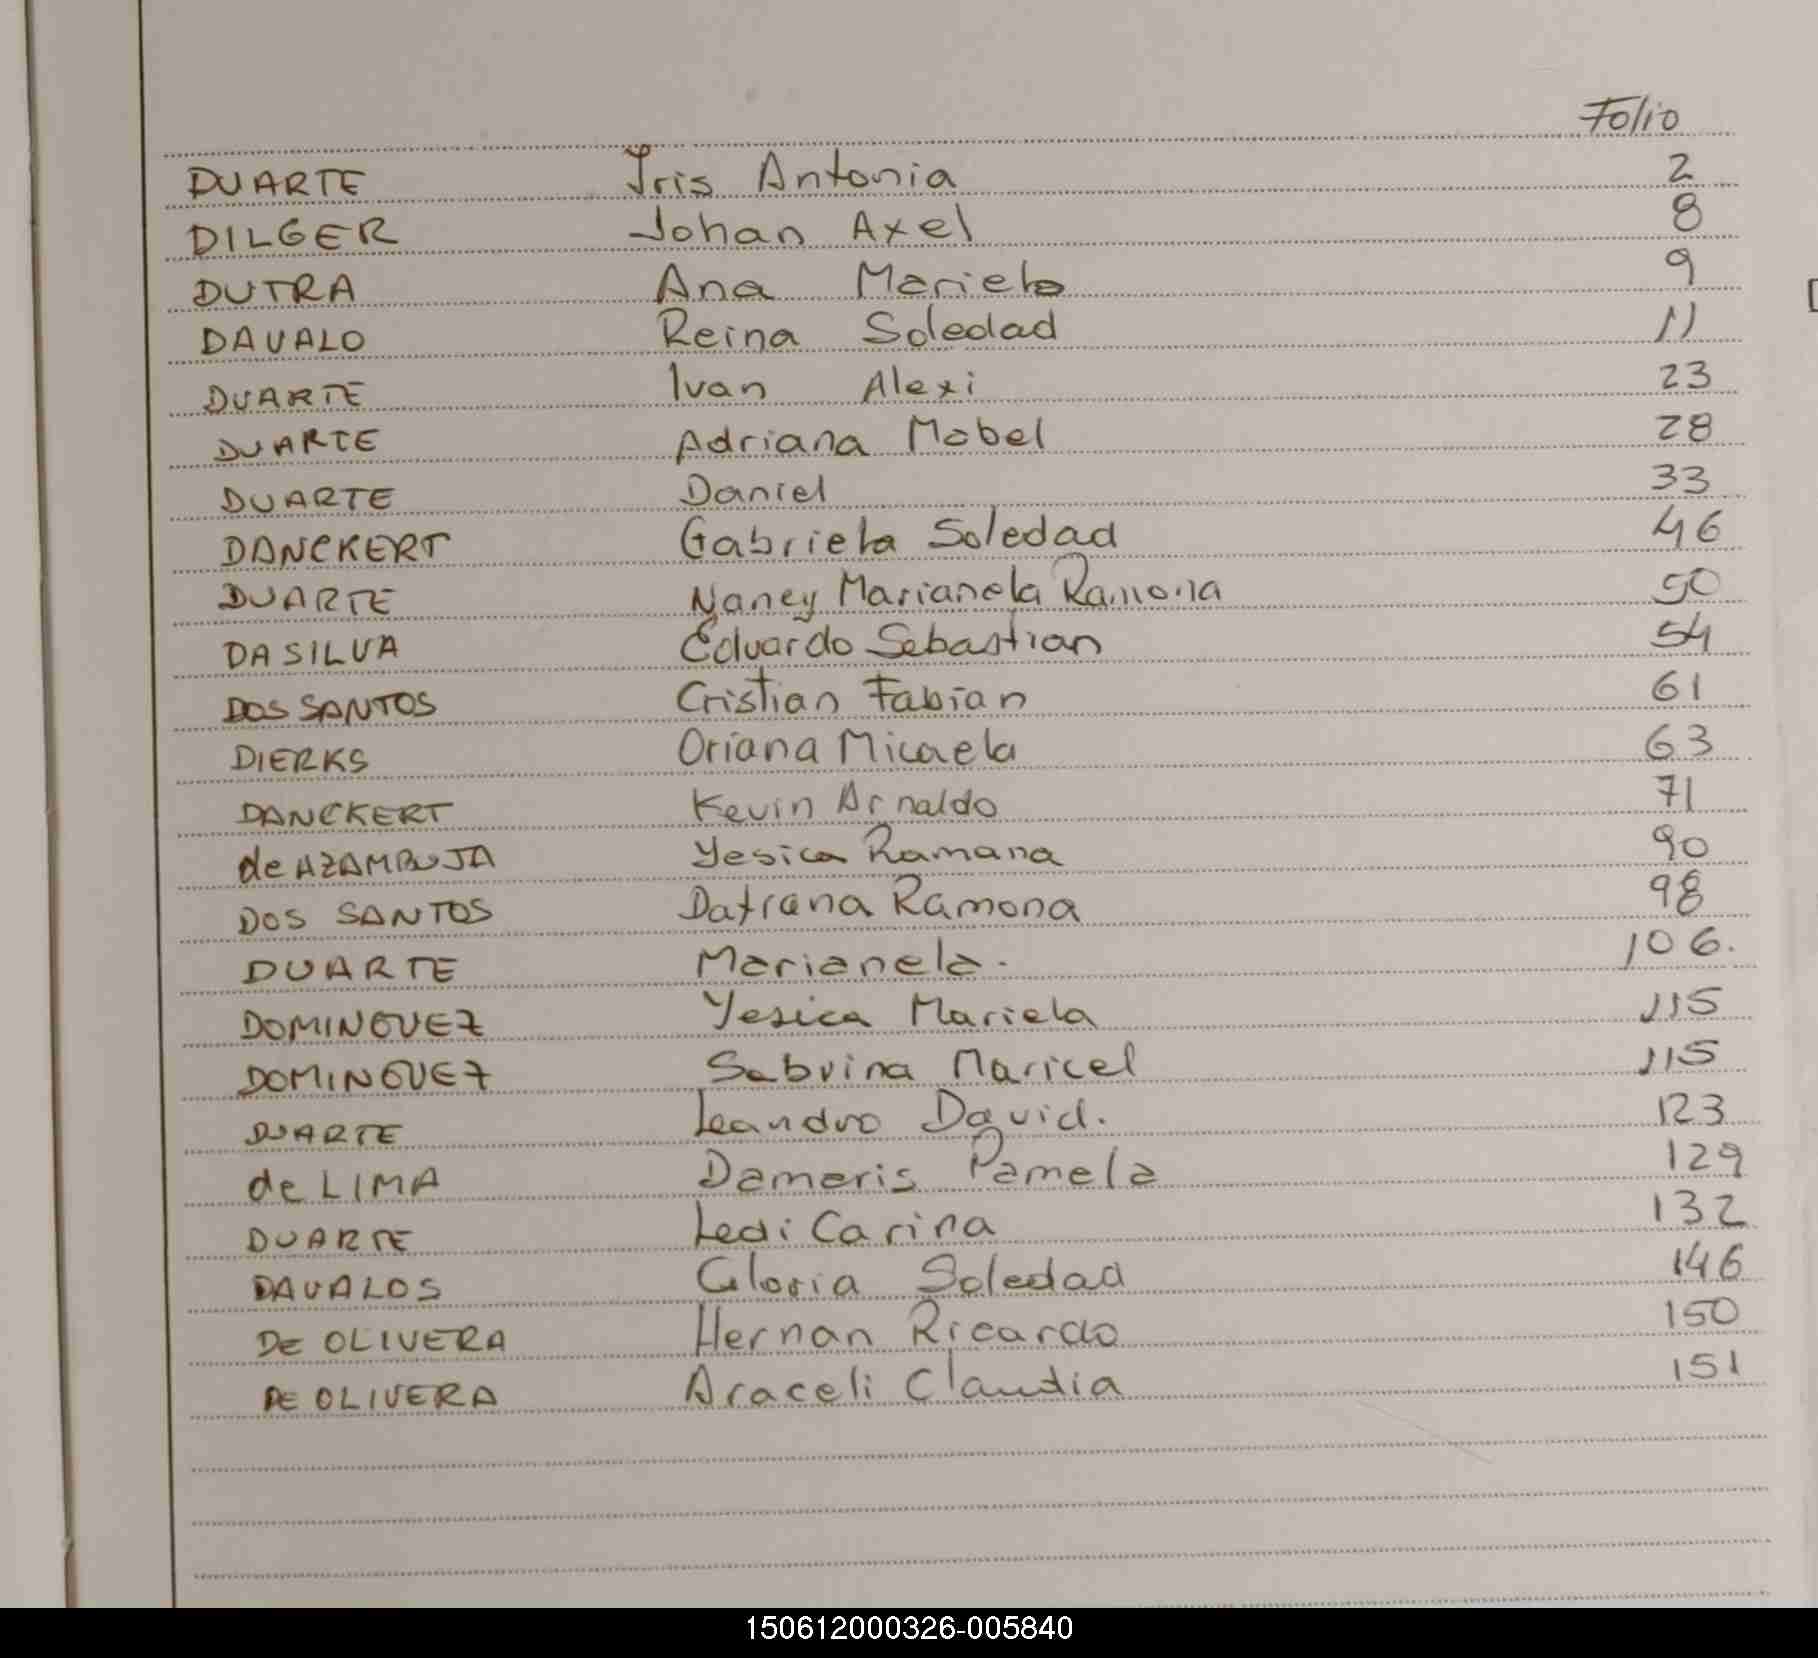 Folio
DUARTE Iris Antonia 2
DILGER Johan Axel 8
DUTRA Ana Mariela 9
DAVALO Reina Soledad 11
DUARTE Ivan Alexi 23
DUARTE Adriana Mabel 28
DUARTE Daniel 33
DANCKERT Gabriela Soledad 46
DUARTE Nancy Marianela Ramona 50
DA SILVA Eduardo Sebastian 54
DOS SANTOS Cristian Fabian 61
DIERKS Oriana Micaela 63
DANCKERT Kevin Arnaldo 71
de AZAMBUJA Yesica Ramana 90
DOS SANTOS Ramona 98
DUARTE Marianela. 106.
DOMINGUEZ Yesica Mariela 115
DOMINGUEZ Sabrina Maricel 115
DUARTE Leandro David. 123
de LIMA Dameris Pamela 129
DUARTE Ledi Carina 132
DAVALOS Gloria Soledad 146
DE OLIVERA Hernan Ricardo 150
DE OLIVERA Araceli Claudia 151
150612000326-005840